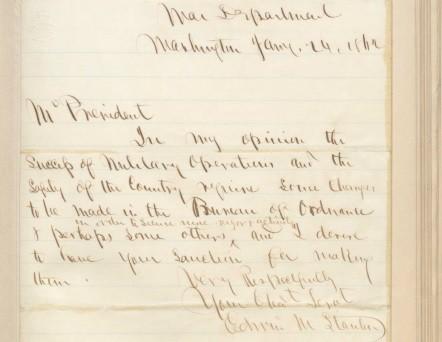 War Department
Washington Jany. 24, 1862
Mr President
In my opinion the
success of Military Operations and the
safety of the Country require some changes
to be made in the Bureau of Ordnance
in order to secure more vigor & activity
& perhaps some others and I desire
to have your Sanction for making
them.
Very Respectfully
Your Obdt Servt
Edwin M Stanton